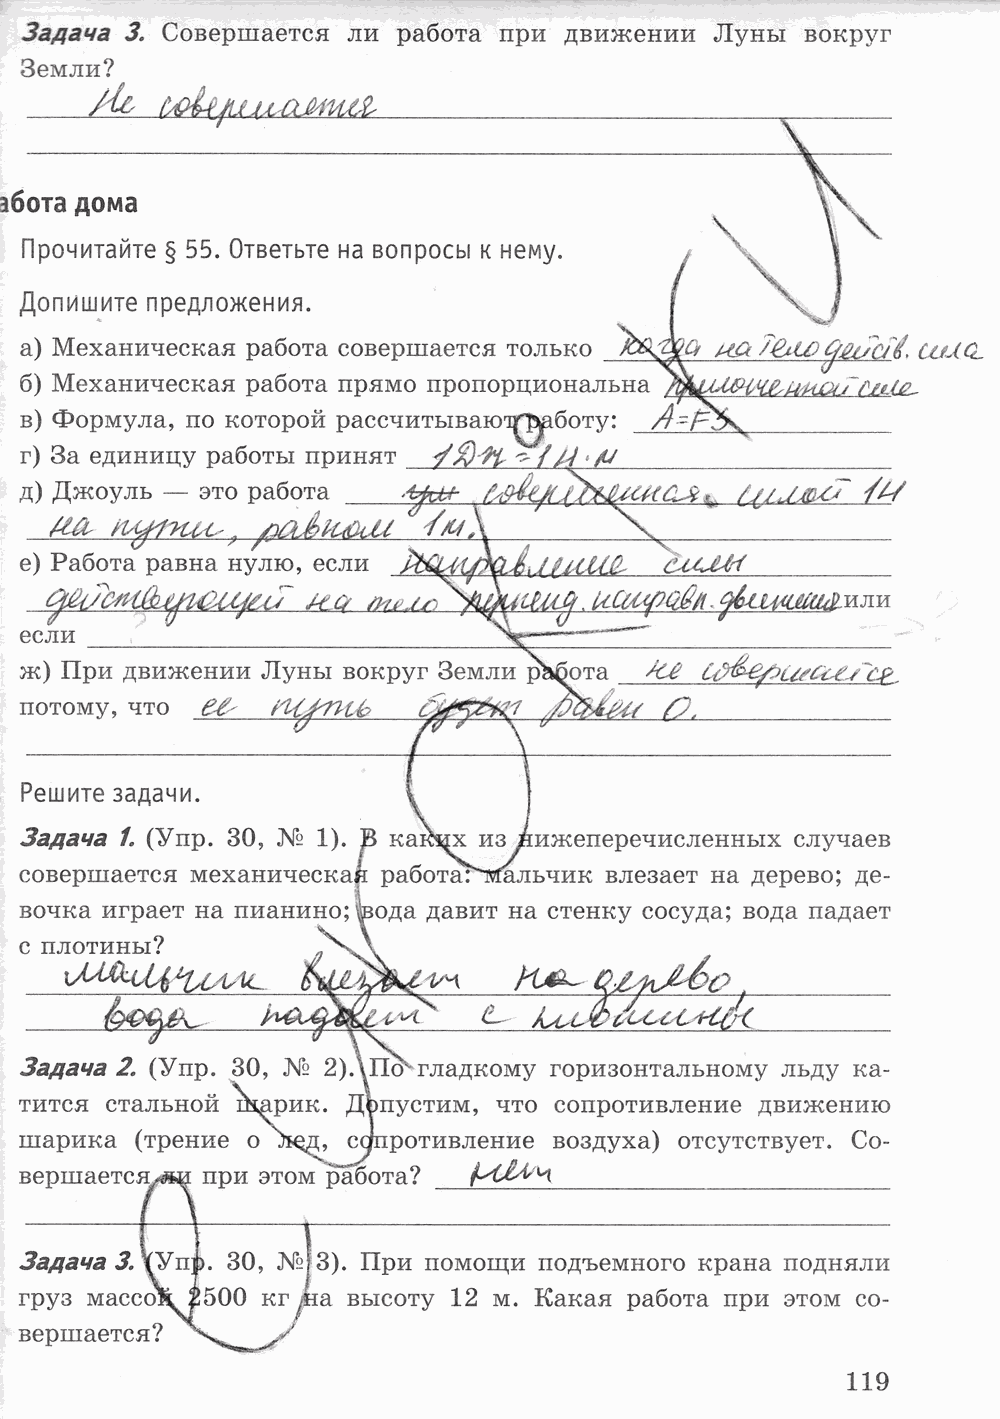 Задача 3. Совершается ли работа при движении Луны вокруг
Земли?
Не совершается
абота дома
Прочитайте § 55. Ответьте на вопросы к нему.
Допишите предложения.
а) Механическая работа совершается только когда на тело действ. сила
б) Механическая работа прямо пропорциональна приложенной силе
в) Формула, по которой рассчитывают работу: A=FS
г) За единицу работы принят 1Дж=1Н·м
д) Джоуль — это работа совершенная силой 1Н
на пути, равном 1м.
е) Работа равна нулю, если направление силы
действующей на тело перпенд. направл. движения или
если
ж) При движении Луны вокруг Земли работа не совершается
потому, что ее путь будет равен 0.
Решите задачи.
Задача 1. (Упр. 30, № 1). В каких из нижеперечисленных случаев
совершается механическая работа: мальчик влезает на дерево; де-
вочка играет на пианино; вода давит на стенку сосуда; вода падает
с плотины?
мальчик влезает на дерево,
вода падает с плотины
Задача 2. (Упр. 30, № 2). По гладкому горизонтальному льду ка-
тится стальной шарик. Допустим, что сопротивление движению
шарика (трение о лед, сопротивление воздуха) отсутствует. Со-
вершается ли при этом работа? нет
Задача 3. (Упр. 30, № 3). При помощи подъемного крана подняли
груз массой 2500 кг на высоту 12 м. Какая работа при этом со-
вершается?
119